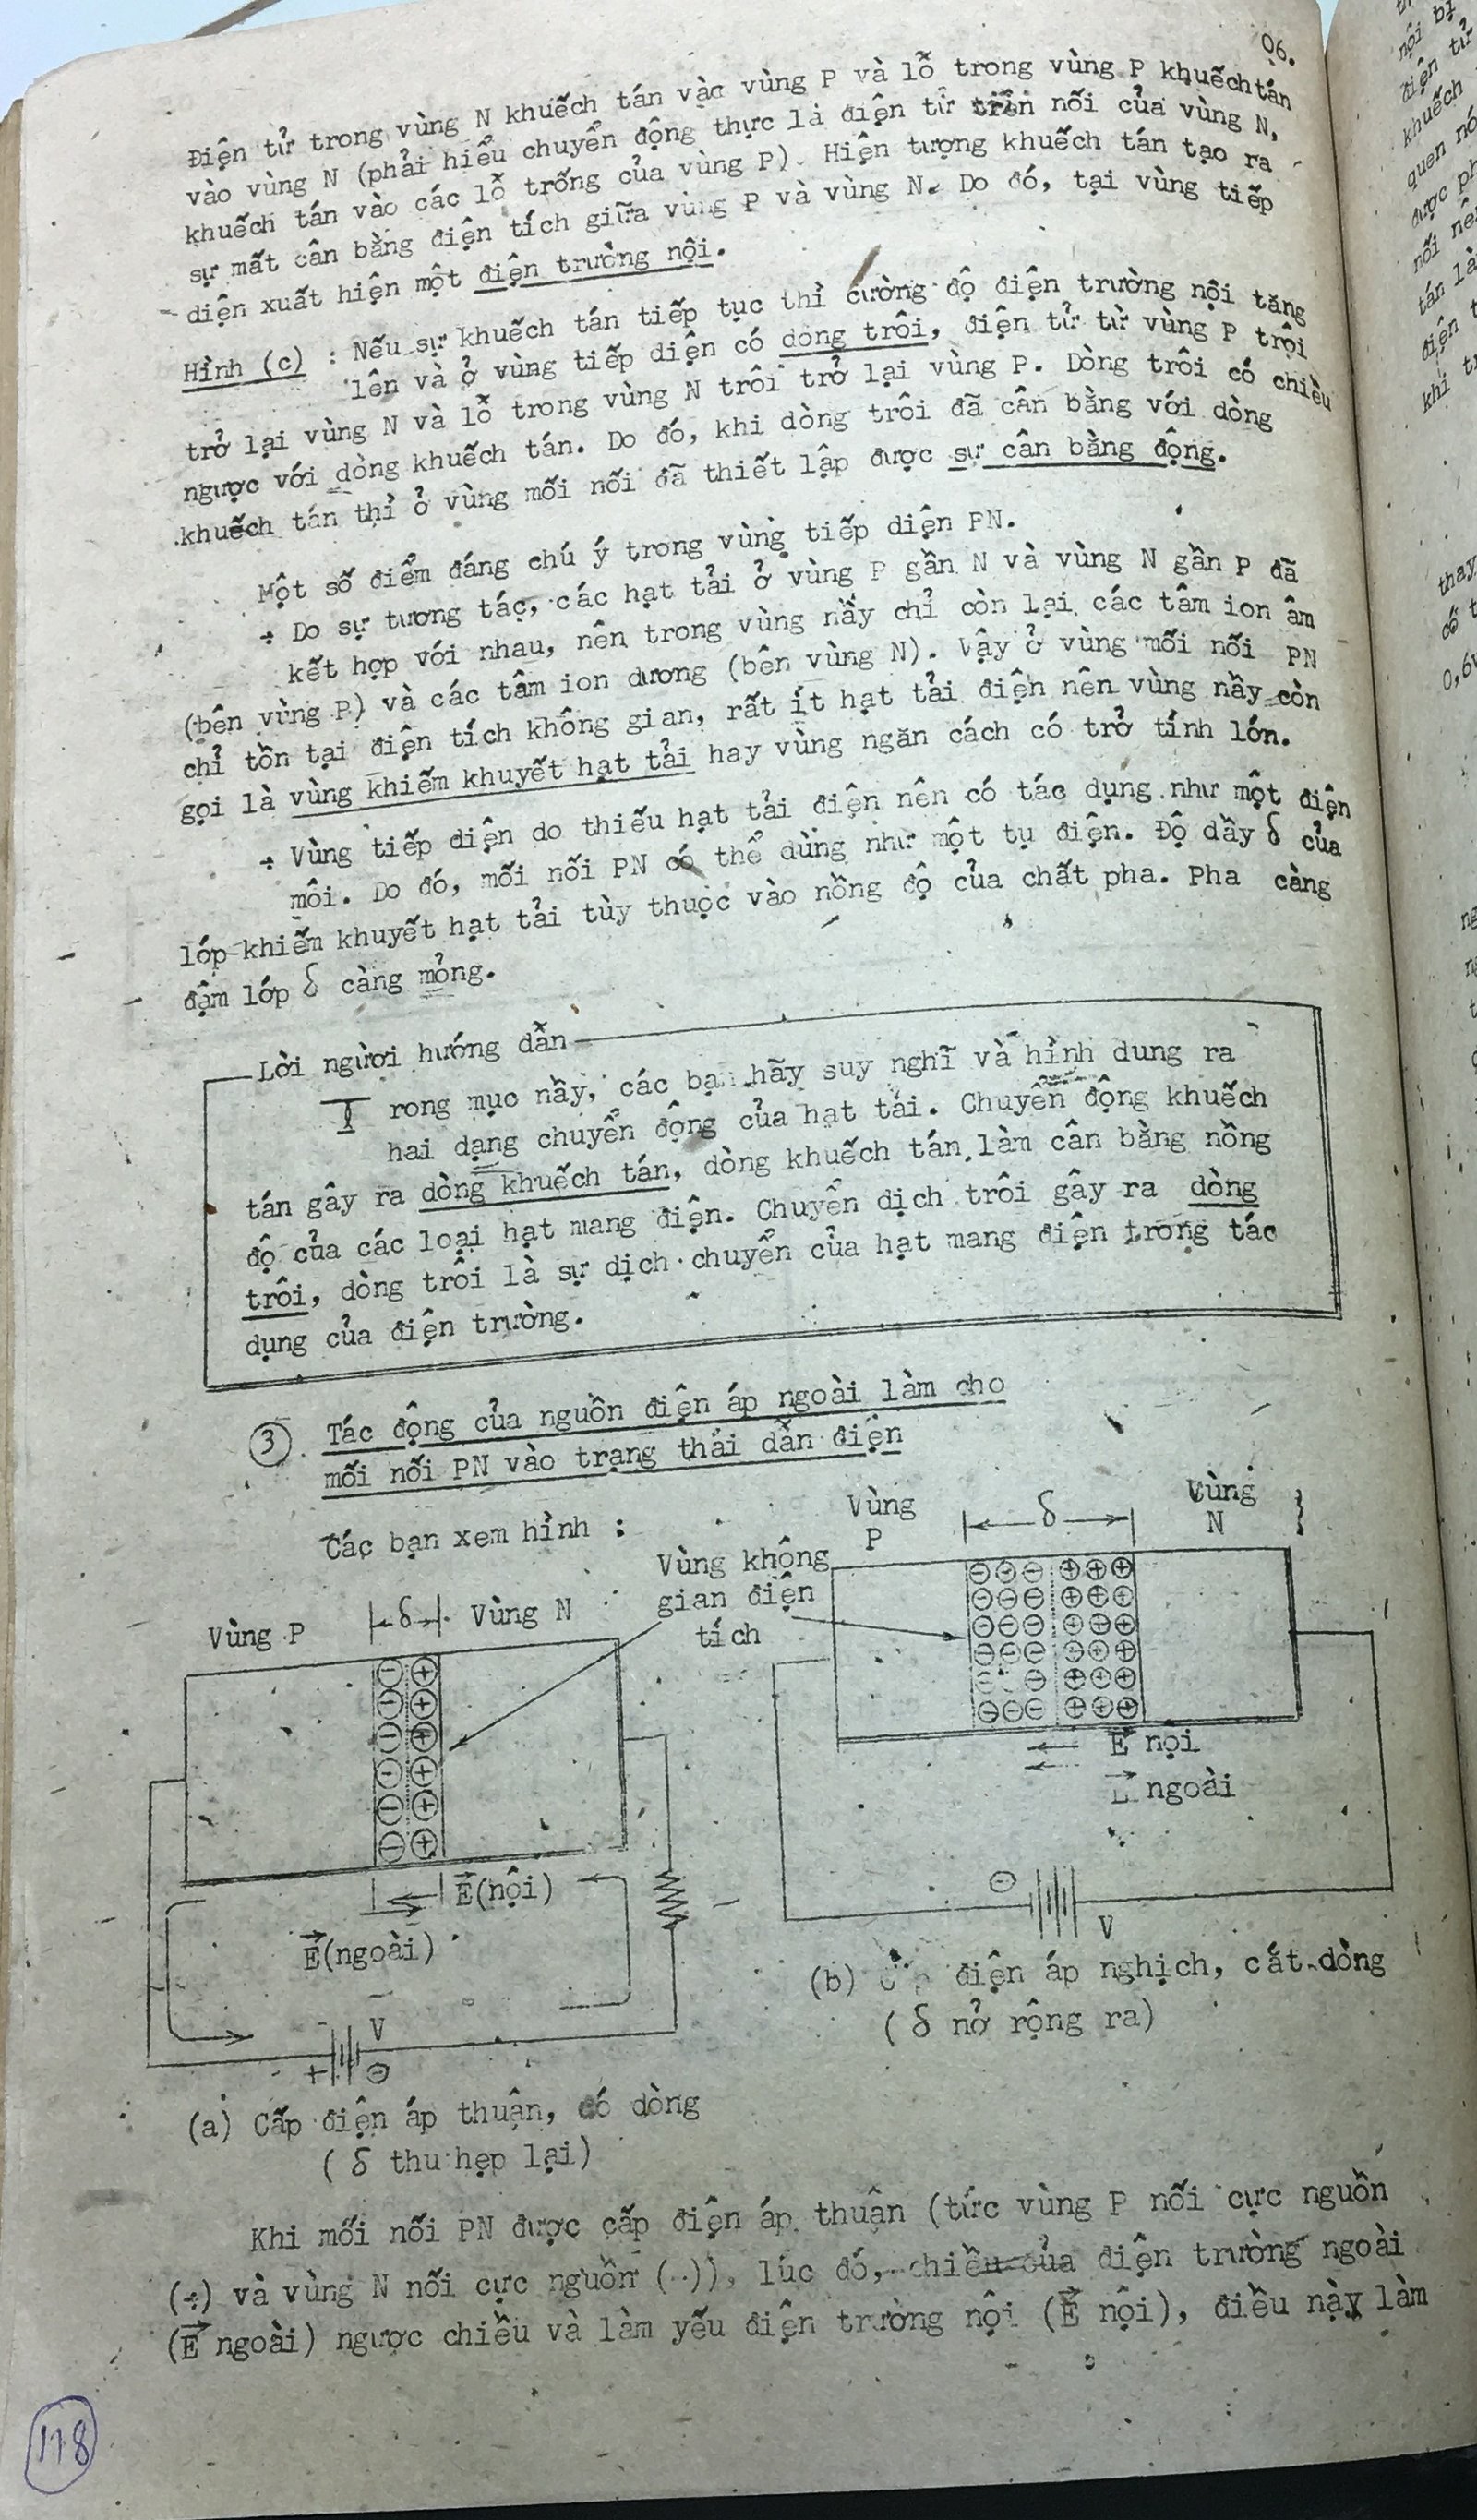 06.
Điện tử trong vùng N khuếch tán vào vùng P và lỗ trong vùng P khuếch tán
vào vùng N (phải hiểu chuyển động thực là điện tử trên nối của vùng N,
khuếch tán vào các lỗ trống của vùng P). Hiện tượng khuếch tán tạo ra
sự mất cân bằng điện tích giữa vùng P và vùng N. Do đó, tại vùng tiếp
diện xuất hiện một điện trường nội.
Hình (c) : Nếu sự khuếch tán tiếp tục thì cường độ điện trường nội tăng
lên và ở vùng tiếp diện có dòng trôi, điện tử từ vùng P trôi
trở lại vùng N và lỗ trong vùng N trôi trở lại vùng P. Dòng trôi có chiều
ngược với dòng khuếch tán. Do đó, khi dòng trôi đã cân bằng với dòng
khuếch tán thì ở vùng mối nối đã thiết lập được sự cân bằng động.
Một số điểm đáng chú ý trong vùng tiếp diện PN.
+ Do sự tương tác, các hạt tải ở vùng P gần N và vùng N gần P đã
kết hợp với nhau, nên trong vùng nầy chỉ còn lại các tâm ion âm
(bên vùng P) và các tâm ion dương (bên vùng N). Vậy ở vùng mối nối PN
chỉ tồn tại điện tích không gian, rất ít hạt tải điện nên vùng nầy còn
gọi là vùng khiếm khuyết hạt tải hay vùng ngăn cách có trở tính lớn.
+ Vùng tiếp diện do thiếu hạt tải điện nên có tác dụng như một điện
môi. Do đó, mối nối PN có thể dùng như một tụ điện. Độ dầy δ của
lớp khiếm khuyết hạt tải tùy thuộc vào nồng độ của chất pha. Pha càng
đậm lớp δ càng mỏng.
Lời người hướng dẫn
Trong mục nầy, các bạn hãy suy nghĩ và hình dung ra
hai dạng chuyển động của hạt tải. Chuyển động khuếch
tán gây ra dòng khuếch tán, dòng khuếch tán làm cân bằng nồng
độ của các loại hạt mang điện. Chuyển dịch trôi gây ra dòng
trôi, dòng trôi là sự dịch chuyển của hạt mang điện trong tác
dụng của điện trường.
3 Tác động của nguồn điện áp ngoài làm cho
mối nối PN vào trạng thái dẫn điện
Các bạn xem hình :
Vùng P
δ
Vùng N
Vùng không
gian điện
tích
Vùng
P
δ
Vùng
N
E nội
ngoài
E(nội)
E(ngoài)
V
+ ⊖
⊖
V
(b) điện áp nghịch, cắt dòng
( δ nở rộng ra)
(a) Cấp điện áp thuận, có dòng
( δ thu hẹp lại)
Khi mối nối PN được cấp điện áp thuận (tức vùng P nối cực nguồn
(+) và vùng N nối cực nguồn (-)), lúc đó, chiều của điện trường ngoài
(E ngoài) ngược chiều và làm yếu điện trường nội (E nội), điều này làm
118